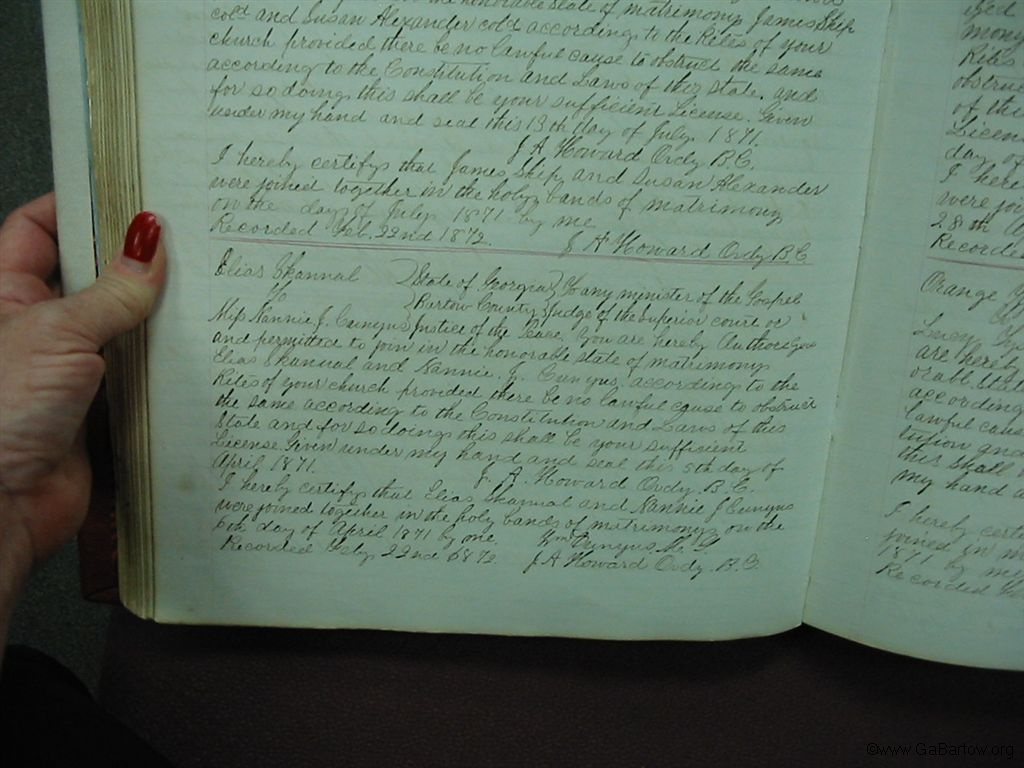 the honorable state of matrimony James Ship
cold and Susan Alexander cold according to the Rites of your
church provided there be no lawful cause to obstruct the same
according to the Constitution and Laws of this State. and
for so doing this shall be your sufficient License. Given
under my hand and seal this 13th day of July. 1871.
J A Howard Ordy B.C.
I hereby certify that James Ship and Susan Alexander
were joined together in the holy bands of matrimony
on the day of July 1871 by me
Recorded Feb. 22nd 1872. J A Howard Ordy B.C.
Elias Skannal } State of Georgia } To any minister of the Gospel
to } Bartow County } Judge of the Superior court or
Miss Nannie J. Cunyus Justice of the Peace, You are hereby
and permitted to join in the honorable state of matrimony
Elias Skannal and Nannie. J. Cunyus according to the
Rites of your church provided there be no lawful cause to obstruct
the same according to the Constitution and Laws of this
State and for so doing this shall be your sufficient
License. Given under my hand and seal this 5th day of
April 1871. J. A. Howard Ordy. B. C.
I hereby certify that Elias Skannal and Nannie J Cunyus
were joined together in the holy bands of matrimony on the
6th day of April 1871 by me Wm Cunyus
Recorded Feby. 22nd 1872. J A Howard Ordy. B.C.
mony
Rites
of the
Licen
day of
I here
were joi
28th
Recorde
Orange
Lucy
are hereby
according
lawful caus
this shall
my hand a
I hereby certi
joined in m
1871 by m
Recorded
©www.GaBartow.org